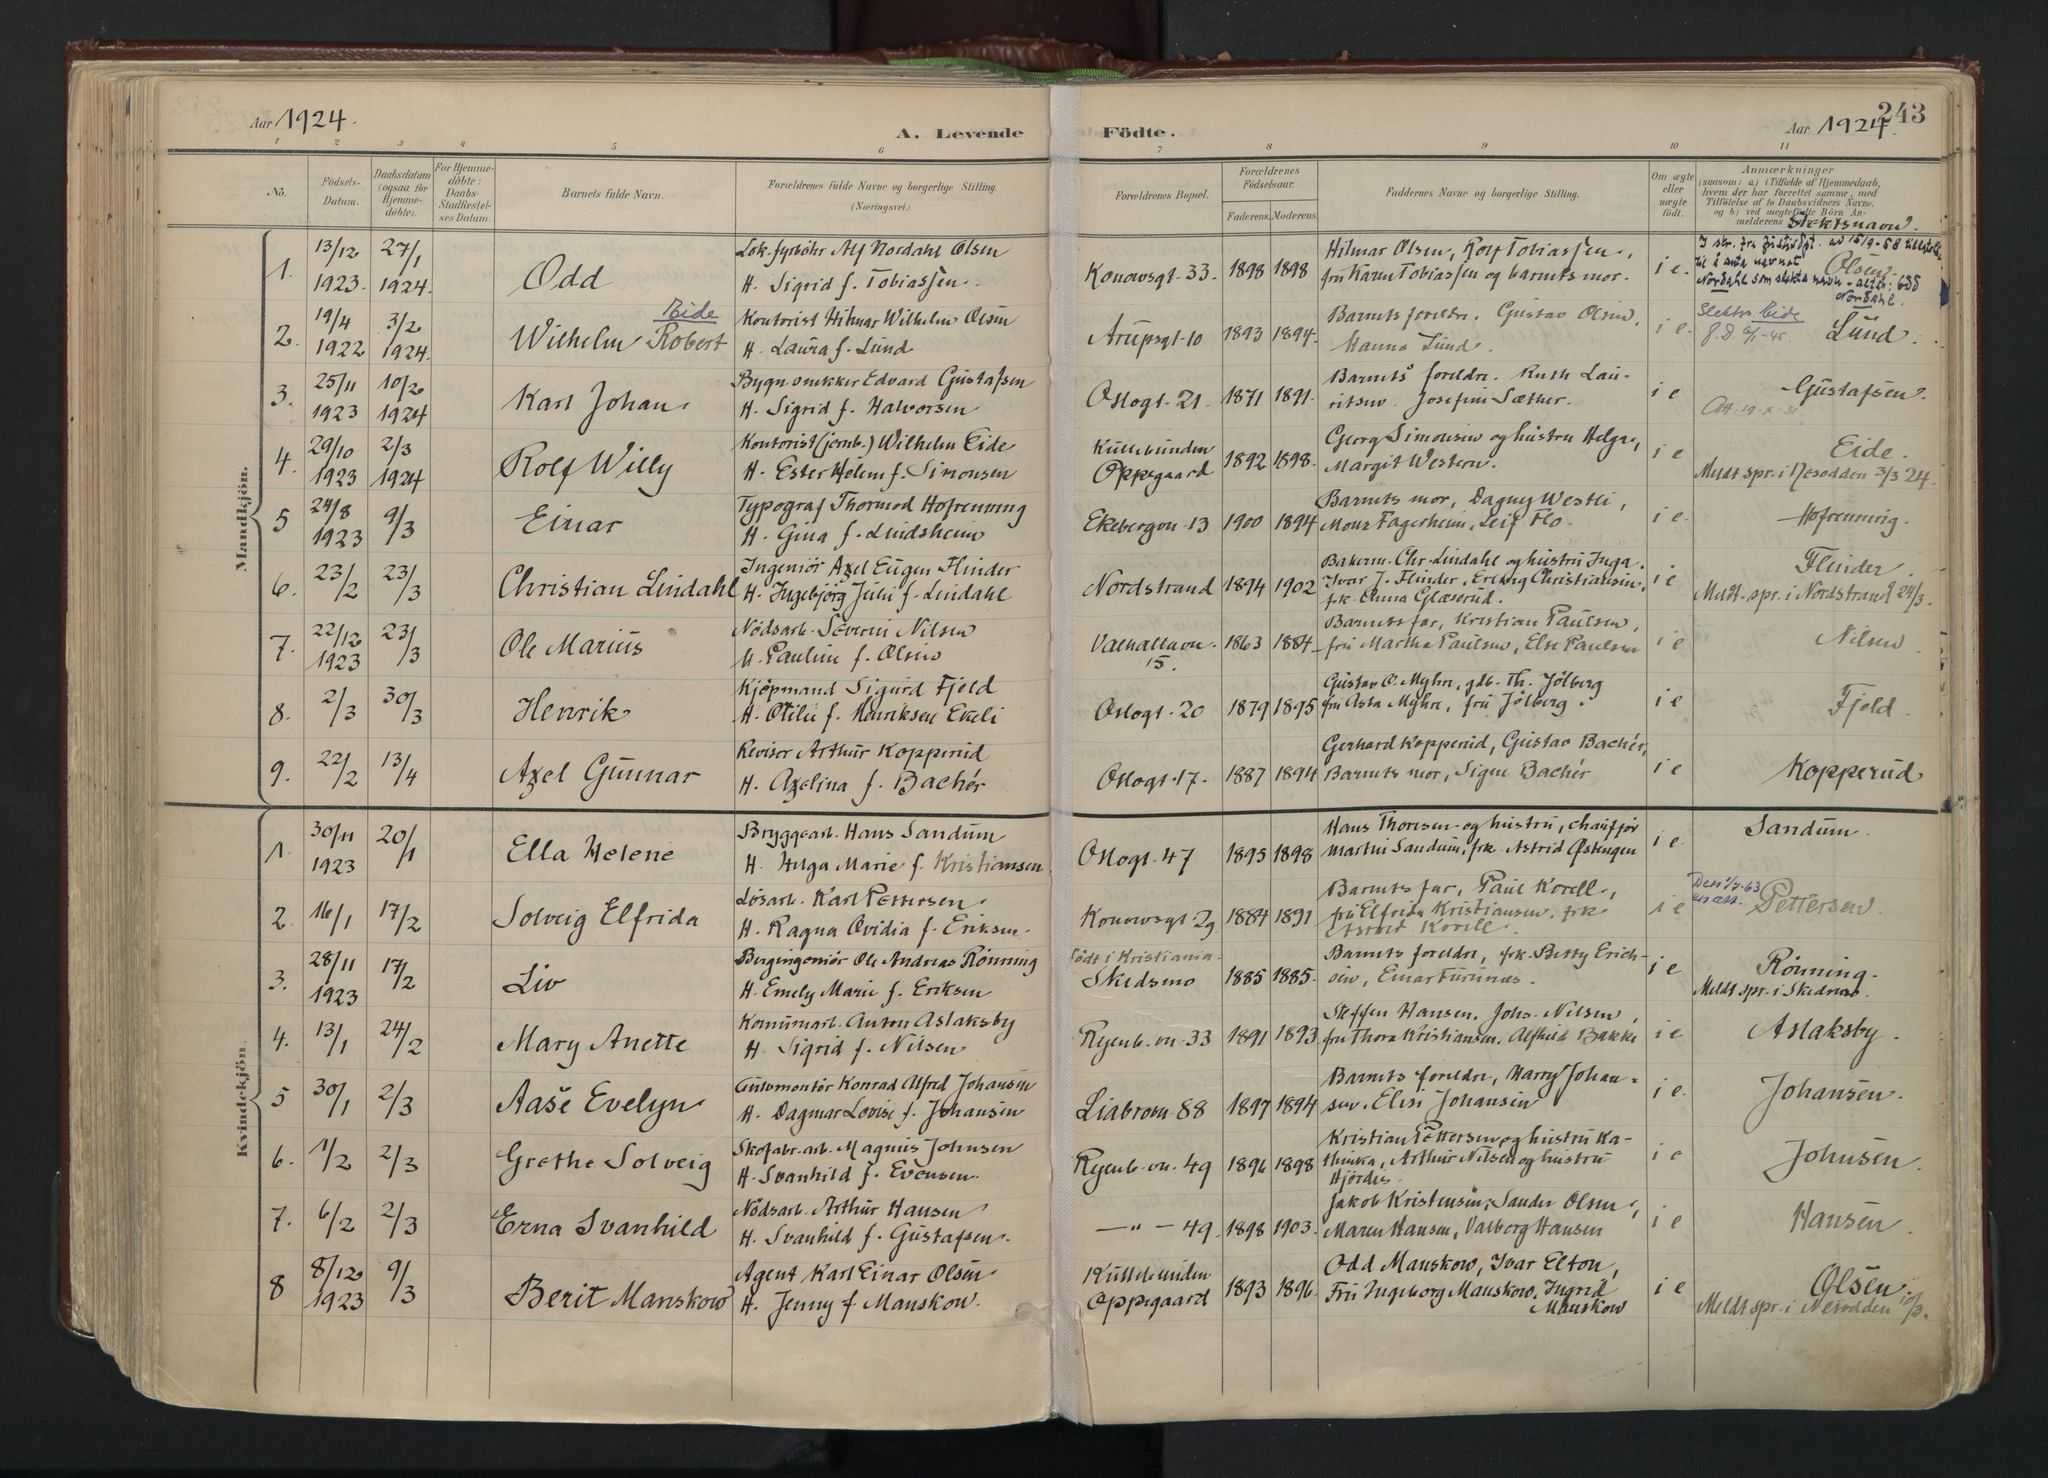 Aar 1924.
A. Levende
Födte.
Aar 1924.
243
1 2 3 4 5 6 7 8 9 10 11
No.
Födsels-
Datum.
Daabsdatum
(ogsaa for
Hjemme-
döbte).
For Hjemme-
döbte:
Daabs-
Stadfæstel-
ses Datum.
Barnets fulde Navn.
Forældrenes fulde Navne og borgerlige Stilling.
(Næringsvei.)
Forældrenes Bopæl.
Forældrenes
Födselsaar.
Faderens. Moderens.
Faddernes Navne og borgerlige Stilling.
Om ægte
eller
uægte
födt.
Anmærkninger
(saasom: a) i Tilfælde af Hjemmedaab,
hvem der har forrettet samme, med
Tilföielse af to Daabsvidners Navne,
og b) ved uægtefödte Börn An-
melderens
Slektsnavn.
Mandkjön.
1. 13/12 1923. 27/1 1924. Odd
Lok. fyrböter Alf Nordahl Olsen
H. Sigrid f. Tobiassen.
Konowsgt. 33. 1898 1898
Hilmar Olsen, Rolf Tobiassen,
fru Karen Tobiassen og barnets mor.
i e. Olsen.
Nordahl som slekts navn
Nordahl.
2. 19/4 1922 3/2 1924. Wilhelm Robert
Eide
Kontorist Hilmar Wilhelm Olsen
H. Laura f. Lund
Arupsgt. 10 1893 1894.
Barnets foreldre. Gustav Olsen,
Hanna Lund.
i e. Slektsn. Eide
Lund.
3. 25/11 1923 10/2 1924 Karl Johan.
Bygn. snikker Edvard Gustafsen
H. Sigrid f. Halvorsen
Oslogt. 21. 1871 1891.
Barnets foreldre. Ruth Lau-
ritsen. Josefine Sæther.
i e Gustafsen.
Att. 19. X. 31.
4. 29/10 1923 2/3 1924 Rolf Willy
Kontorist (jernb.) Wilhelm Eide
H. Ester Helene f. Simonsen
Kullebunden
Oppegaard 1892 1898.
Georg Simonsen og hustru Helga,
Margit Western.
i e Eide.
Meldt spr. i Nesodden 3/3 24.
5 24/8 1923 9/3 Einar
Typograf Thormod Hofrenning
H. Gina f. Lindsheim
Ekebergvn. 13 1900 1894
Barnets mor, Dagny Westli,
Mona Fagerheim, Leif Flo.
i e. Hofrenning.
6. 23/2 23/3 Christian Lindahl
Ingeniör Axel Eugen Flinder
H. Ingebjörg Julie f. Lindahl
Nordstrand 1894 1902
Bakerm. Chr. Lindahl og hustru Inga.
Ivar J. Flinder, Erling Christiansen,
frk. Anna Glæserud.
i e Flinder.
Meldt. spr. i Nordstrand 24/3.
7. 22/12 1923 23/3 Ole Marius
Nödsarb. Severin Nilsen
H. Pauline f. Olsen
Valhallavn.
15. 1863 1884
Barnets far, Kristian Paulsen,
fru Martha Paulsen, Else Paulsen
i e Nilsen
8. 2/3 30/3 Henrik
Kjöpmand Sigurd Fjeld
H. Otilie f. Henriksen Ekeli
Oslogt. 20 1879 1895
Gustav O. Myhre, gdb. Th. Jölberg
fru Asta Myhre, fru Jölberg.
i e Fjeld.
9. 22/2 13/4 Axel Gunnar
Revisor Arthur Kopperud
H. Axelina f. Bachér
Oslogt. 17. 1887 1894
Gerhard Kopperud, Gustav Bachér,
Barnets mor, Signe Bachér
i e Kopperud
Kvindekjön.
1. 30/11 1923 20/1 Ella Helene
Bryggearb. Hans Sandum
H. Helga Marie f. Kristiansen
Oslogt. 47 1895 1898
Hans Thoresen og hustru, chauffør
Martin Sandum, frk. Astrid Østengen
i e. Sandum.
2. 16/1 17/2 Solveig Elfrida
Løsarb. Karl Pettersen
H. Ragna Ovidia f. Eriksen.
Konowsgt. 29 1884 1891
Barnets far, Paul Korell,
fru Elfrida Kristiansen, frk.
Astrid Korell.
i e Pettersen.
3. 28/11 1923 17/2 Liv
Bergingeniör Ole Andreas Rönning
H. Emely Marie f. Eriksen
født i Kristiania.
Skedsmo 1885 1885.
Barnets foreldre, frk. Betty Erich-
sen, Einar Furunes.
i e Rönning.
Meldt spr. i Skedsmo.
4. 13/1 24/2 Mary Anette
Kommunearb. Anton Aslaksby
H. Sigrid f. Nilsen
Ryenb. vn. 33 1891 1893
Steffen Hansen, Johs. Nilsen,
fru Thora Kristiansen, Alfhild Bakke
i e Aslaksby.
5 30/1 2/3 Aase Evelyn
Automontör Konrad Alfred Johansen
H. Dagmar Lovise f. Johansen
Liabrovn. 88 1897 1894
Barnets foreldre, Harry Johan-
sen. Elise Johansen
i e. Johansen.
6. 1/2 2/3 Grethe Solveig
Skofabr. arb. Magnus Johnsen
H. Svanhild f. Evensen.
Ryenb. vn. 49 1896 1898
Kristian Pettersen og hustru Ka-
thinka, Arthur Nilsen og hustru
Hjördis.
i e Johnsen.
7. 6/2 2/3 Erna Svanhild
Nödsarb. Arthur Hansen
H. Svanhild f. Gustafsen.
— " — 49. 1898 1903.
Jakob Kristensen, Sander Olsen,
Maren Hansen, Valborg Hansen
i e Hansen
8 8/12 1923 9/3 Berit Manskow
Agent Karl Einar Olsen
H. Jenny f Manskow.
Kullebunden
Oppegaard 1893 1896
Odd Manskow, Ivar Elton,
Fru Ingeborg Manskow, Ingrid
Manskow
i e Olsen
Meldt spr. i Nesodden 10/3.